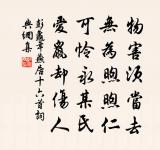 物害須當去
無為煦煦仁
可憐永某氏
愛鼠却傷人
彭龜年燕居十六首詞
典網集